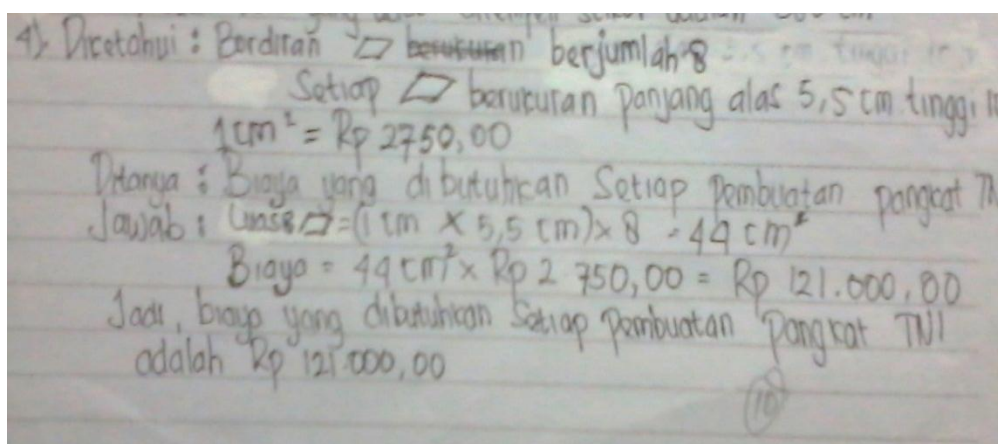 4) Diketahui : Bordiran ▱ berukuran berjumlah 8
Setiap ▱ berukuran panjang alas 5,5 cm tinggi 1
1 cm² = Rp 2750,00
Ditanya : Biaya yang dibutuhkan Setiap Pembuatan pangkat TN
Jawab : Luas 8 ▱ = (1 cm × 5,5 cm) × 8 = 44 cm²
Biaya = 44 cm² × Rp 2 750,00 = Rp 121.000,00
Jadi, biaya yang dibutuhkan Setiap Pembuatan Pangkat TNI
adalah Rp 121.000,00
10